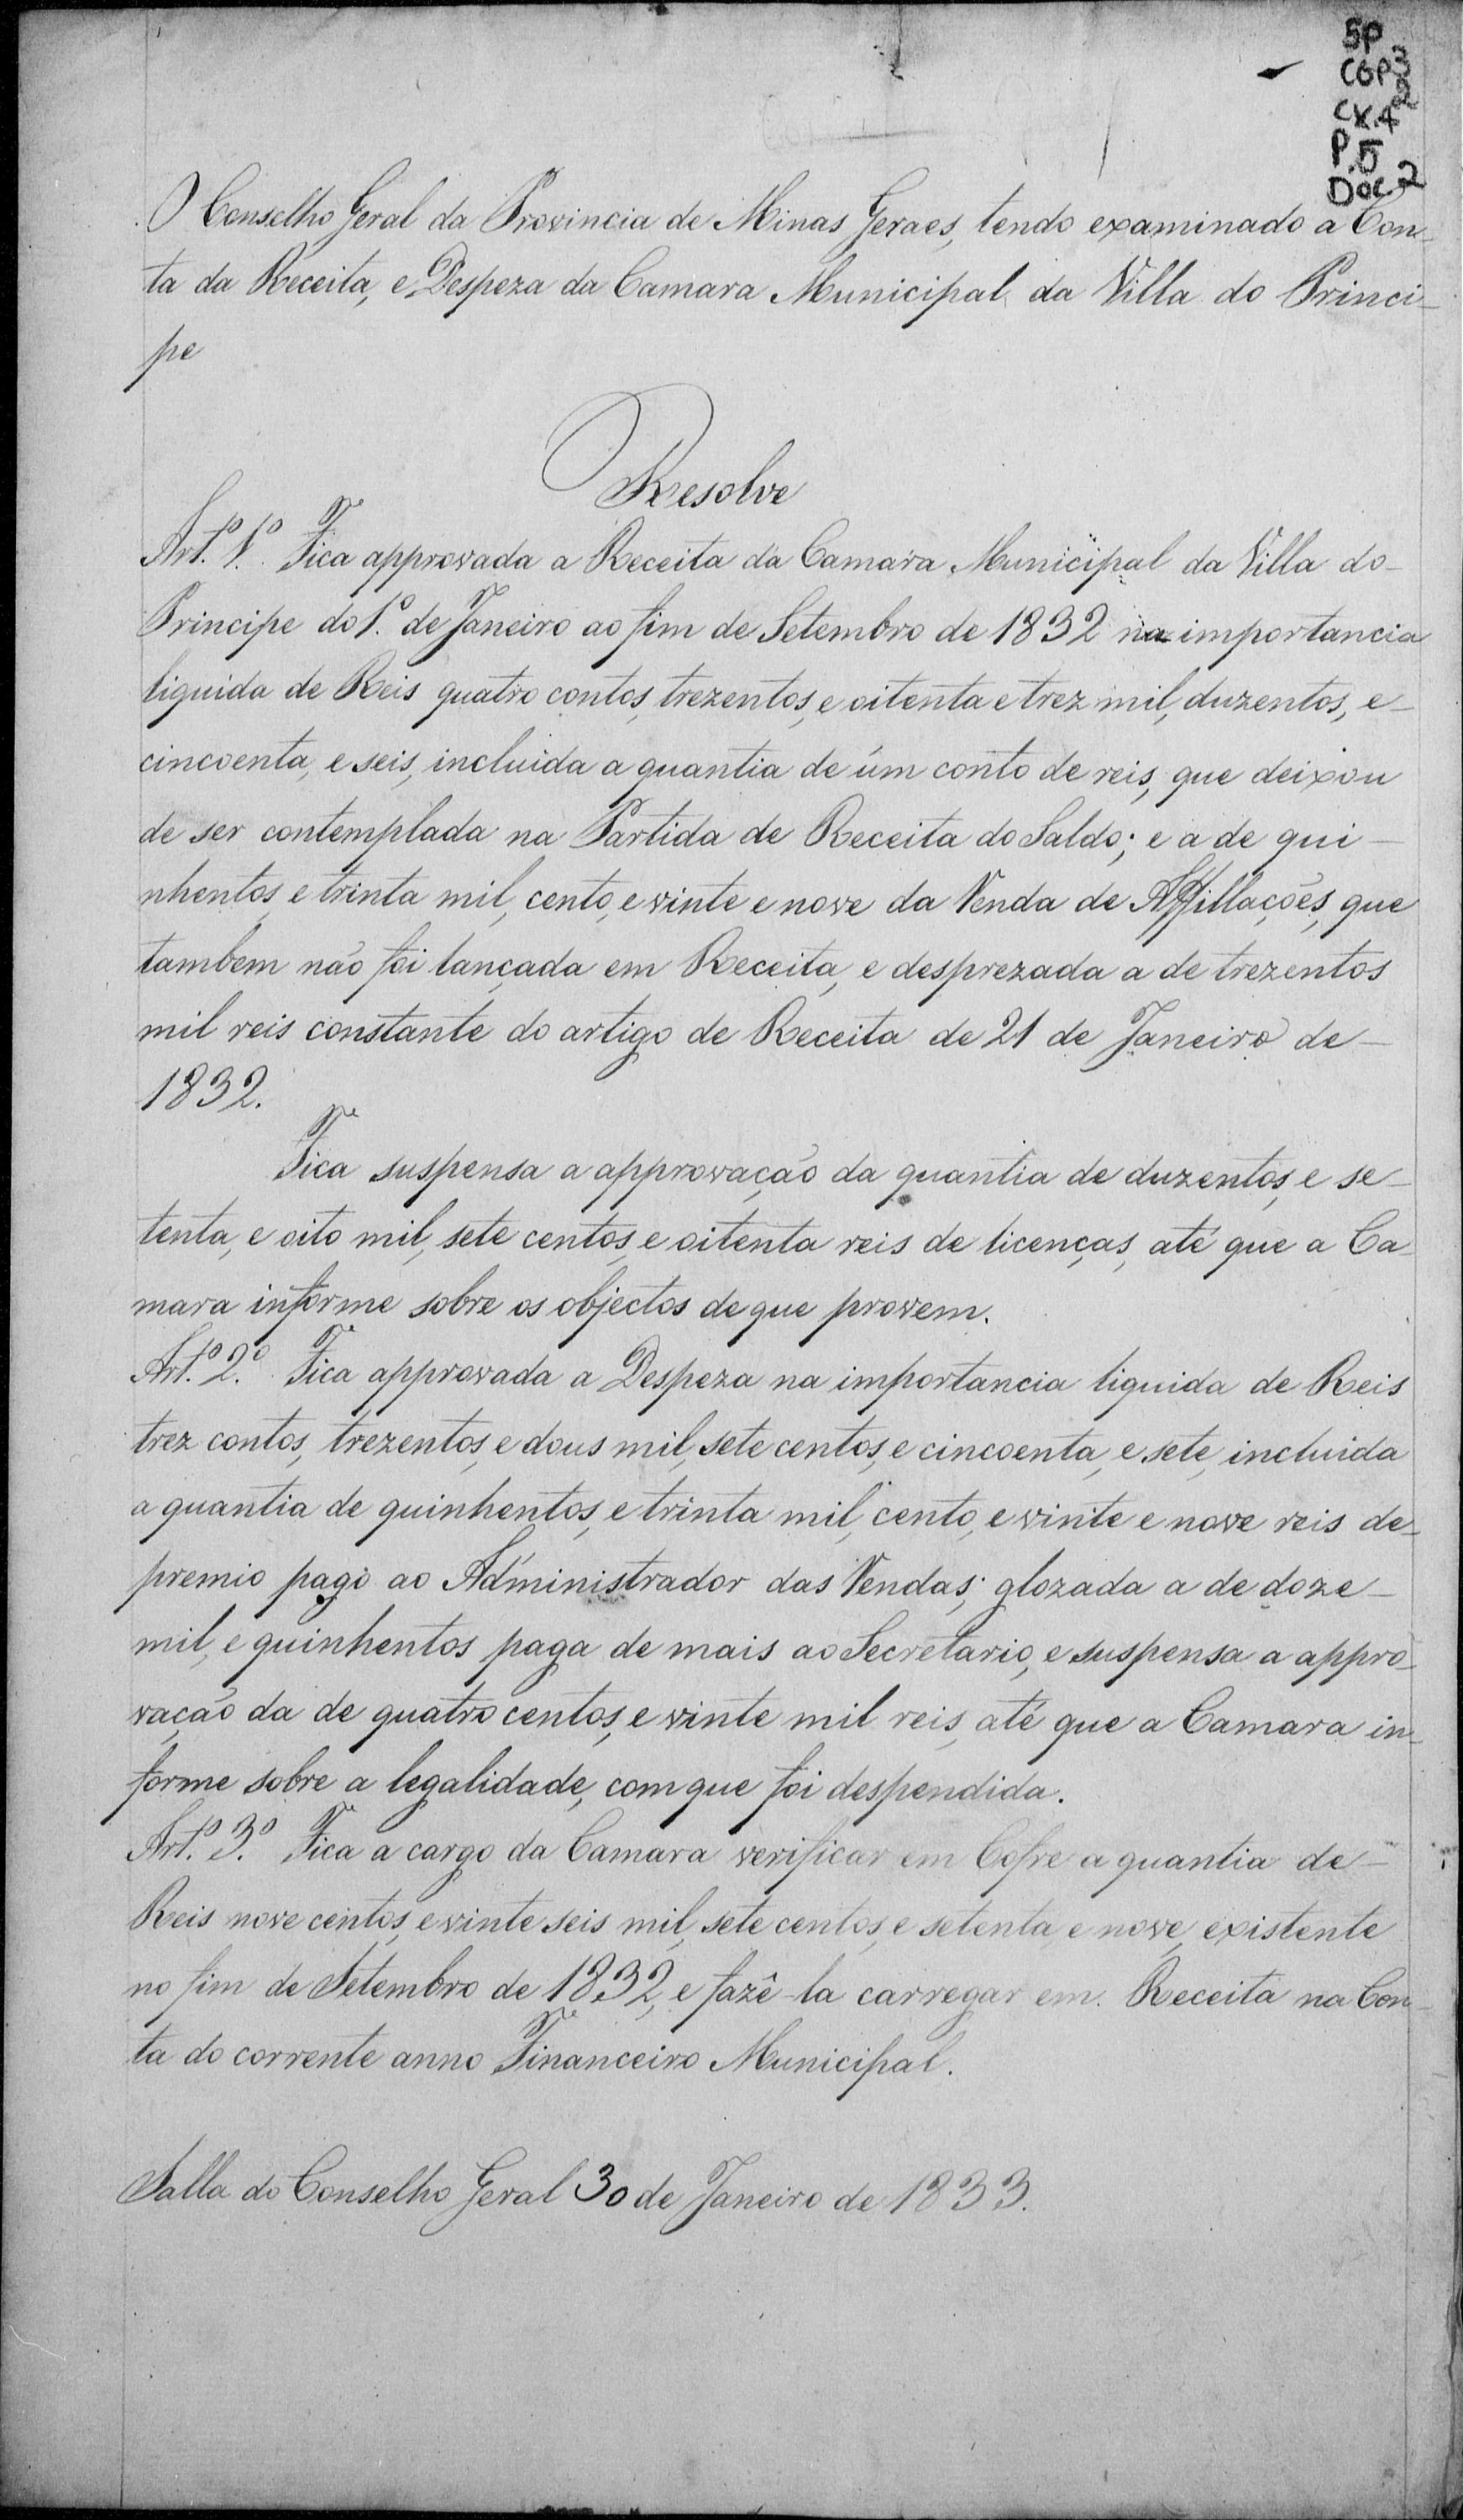 SP
CGP3
CX.42
P.5
Doc.2
O Conselho Geral da Provincia de Minas Geraes, tendo examinado a Con-
ta da Receita, e Despeza da Camara Municipal da Villa do Princi-
pe
Resolve
Art.º 1.º Fica approvada a Receita da Camara Municipal da Villa do-
Principe do 1.º de Janeiro ao fim de Setembro de 1832 na importancia
liquida de Reis quatro contos, trezentos, e oitenta e trez mil, duzentos, e-
cincoenta, e seis, incluida a quantia de úm conto de reis, que deixou
de ser contemplada na Partida de Receita do Saldo; e a de qui-
nhentos, e trinta mil, cento, e vinte e nove da Venda de Affillações, que
tambem não foi lançada em Receita, e desprezada a de trezentos
mil reis constante do artigo de Receita de 21 de Janeiro de-
1832.
Fica suspensa a approvação da quantia de duzentos, e se-
tenta, e oito mil, sete centos, e oitenta reis de licenças, até que a Ca-
mara informe sobre os objectos de que provem.
Art.º 2.º Fica approvada a Despeza na importancia liquida de Reis
trez contos, trezentos, e dous mil, sete centos, e cincoenta, e sete, incluida
a quantia de quinhentos, e trinta mil, cento, e vinte e nove reis de-
premio pago ao Administrador das Vendas; glozada a de doze-
mil, e quinhentos paga de mais ao Secretario, e suspensa a appro-
vação da de quatro centos, e vinte mil reis, até que a Camara in-
forme sobre a legalidade, com que foi despendida.
Art.º 3.º Fica a cargo da Camara verificar em Cofre a quantia de-
Reis nove centos, e vinte seis mil, sete centos, e setenta, e nove, existente
no fim de Setembro de 1832, e fazê-la carregar em Receita na Con-
ta do corrente anno Financeiro Municipal.
Salla do Conselho Geral 30 de Janeiro de 1833.